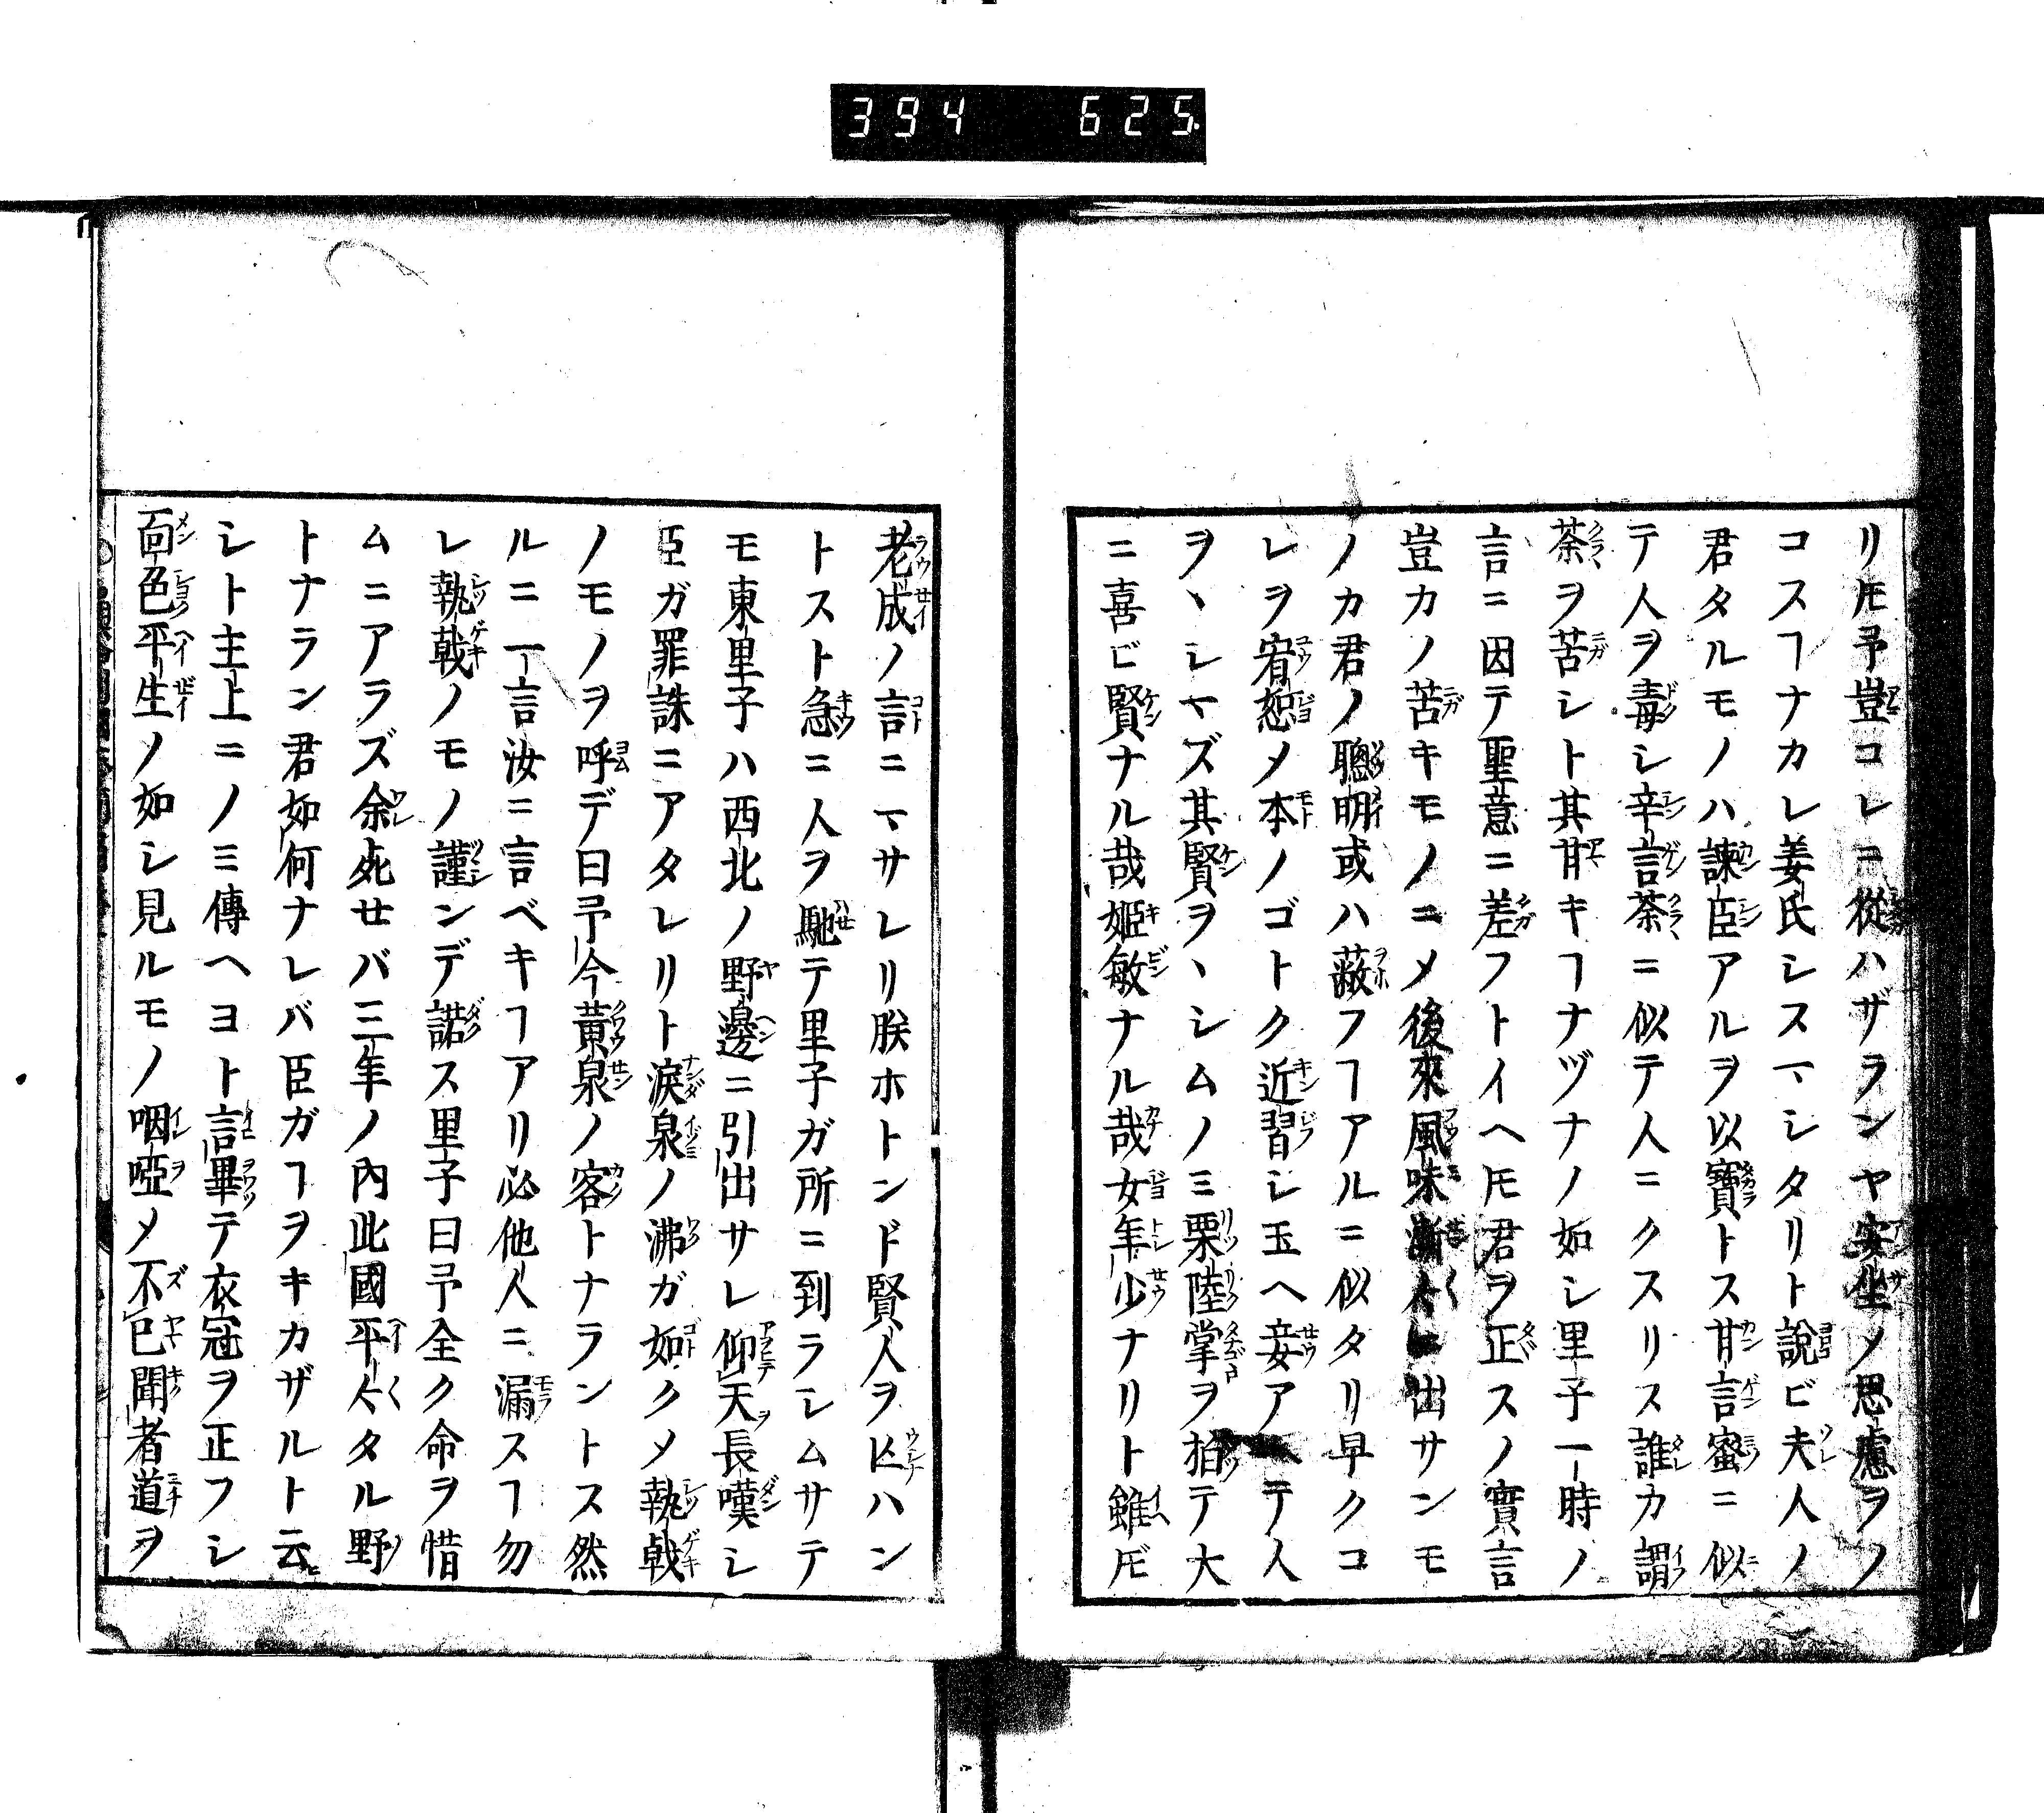 394 625
リ𪜈予豈コレニ從ハザランヤ安坐〆思慮ヲノ
コスヿナカレ姜氏シスヽシタリト説ビ夫人ノ
君タルモノハ諫臣アルヲ以寶トス甘言蜜ニ似
テ人ヲ毒シ辛言荼ニ似テ人ニクスリス誰カ謂
荼ヲ苦シト其甘キヿナヅナノ如シ里子一時ノ
言ニ因テ聖意ニ差フトイヘ𪜈君ヲ正スノ實言
豈カノ苦キモノニ〆後來風味漸〻ニ出サンモ
ノカ君ノ聰明或ハ蔽フヿアルニ似タリ早クコ
レヲ宥恕〆本ノゴトク近習シ玉ヘ妾アヘテ人
ヲヽシマズ其賢ヲヽシムノミ栗陸掌ヲ拍テ大
ニ喜ビ賢ナル哉姬敏ナル哉女年少ナリト雖𪜈
老成ノ言ニマサレリ朕ホトンド賢人ヲ𠤎ハン
トスト急ニ人ヲ馳テ里子ガ所ニ到ラシムサテ
モ東里子ハ西北ノ野邊ニ引出サレ仰天長嘆シ
臣ガ罪誅ニアタレリト淚泉ノ沸ガ如ク〆執戟
ノモノヲ呼デ曰予今黃泉ノ客トナラントス然
ルニ一言汝ニ言ベキヿアリ必他人ニ漏スヿ勿
レ執戟ノモノ謹ンデ諾ス里子曰予全ク命ヲ惜
ムニアラズ余死セバ三年ノ內此國平〻タル野
トナラン君如何ナレバ臣ガヿヲキカザルト云
シト主上ニノミ傳ヘヨト言畢テ衣冠ヲ正フシ
面色平生ノ如シ見ルモノ咽啞〆不已聞者道ヲ